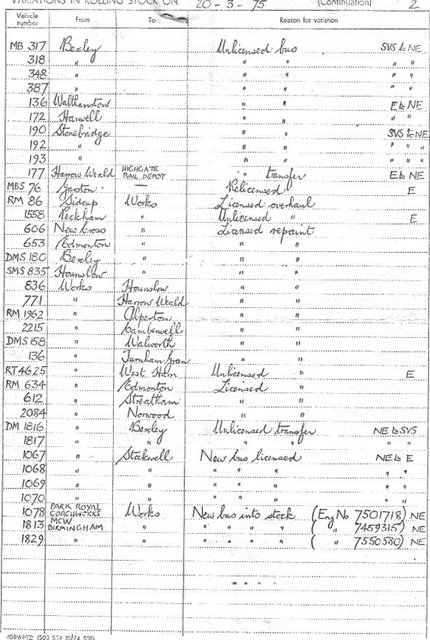 VARIATIONS IN ROLLING STOCK ON 20-3-75 (Continuation) 2
Vehicle number From To Reason for variation
MB 317 Bexley Unlicensed bus SVS to NE
318 " " " " "
348 " " " " "
387 " " " " "
136 Walthamstow " " E to NE
172 Hanwell " " " "
190 Stonebridge " " SVS to NE
192 " " " " "
193 " " " " "
177 Harrow Weald HIGHGATE RAIL DEPOT " transfer E to NE
MBS 76 Garston — Relicensed E
RM 86 Sidcup Works Licensed overhaul
1558 Peckham " Unlicensed " E
606 New Cross " Licensed repaint
653 Edmonton " " "
DMS 180 Bexley " " "
SMS 835 Hounslow " " "
836 Works Hounslow " "
771 " Harrow Weald " "
RM 1962 " Alperton " "
2215 " Camberwell " "
DMS 158 " Walworth " "
136 " Turnham Green " "
RT 4625 " West Ham Unlicensed " E
RM 634 " Edmonton Licensed "
612 " Streatham " "
2084 " Norwood " "
DM 1816 " Bexley Unlicensed transfer NE to SVS
1817 " " " " " "
1067 " Stockwell New bus licensed NE to E
1068 " " " " " " "
1069 " " " " " " "
1070 " " " " " " "
1078 PARK ROYAL COACHWORKS Works New bus into stock (Eng No 7501718) NE
1813 MCW BIRMINGHAM " " " " " ( " 7459315) NE
1829 " " " " " " ( " 7550580) NE
" " " "